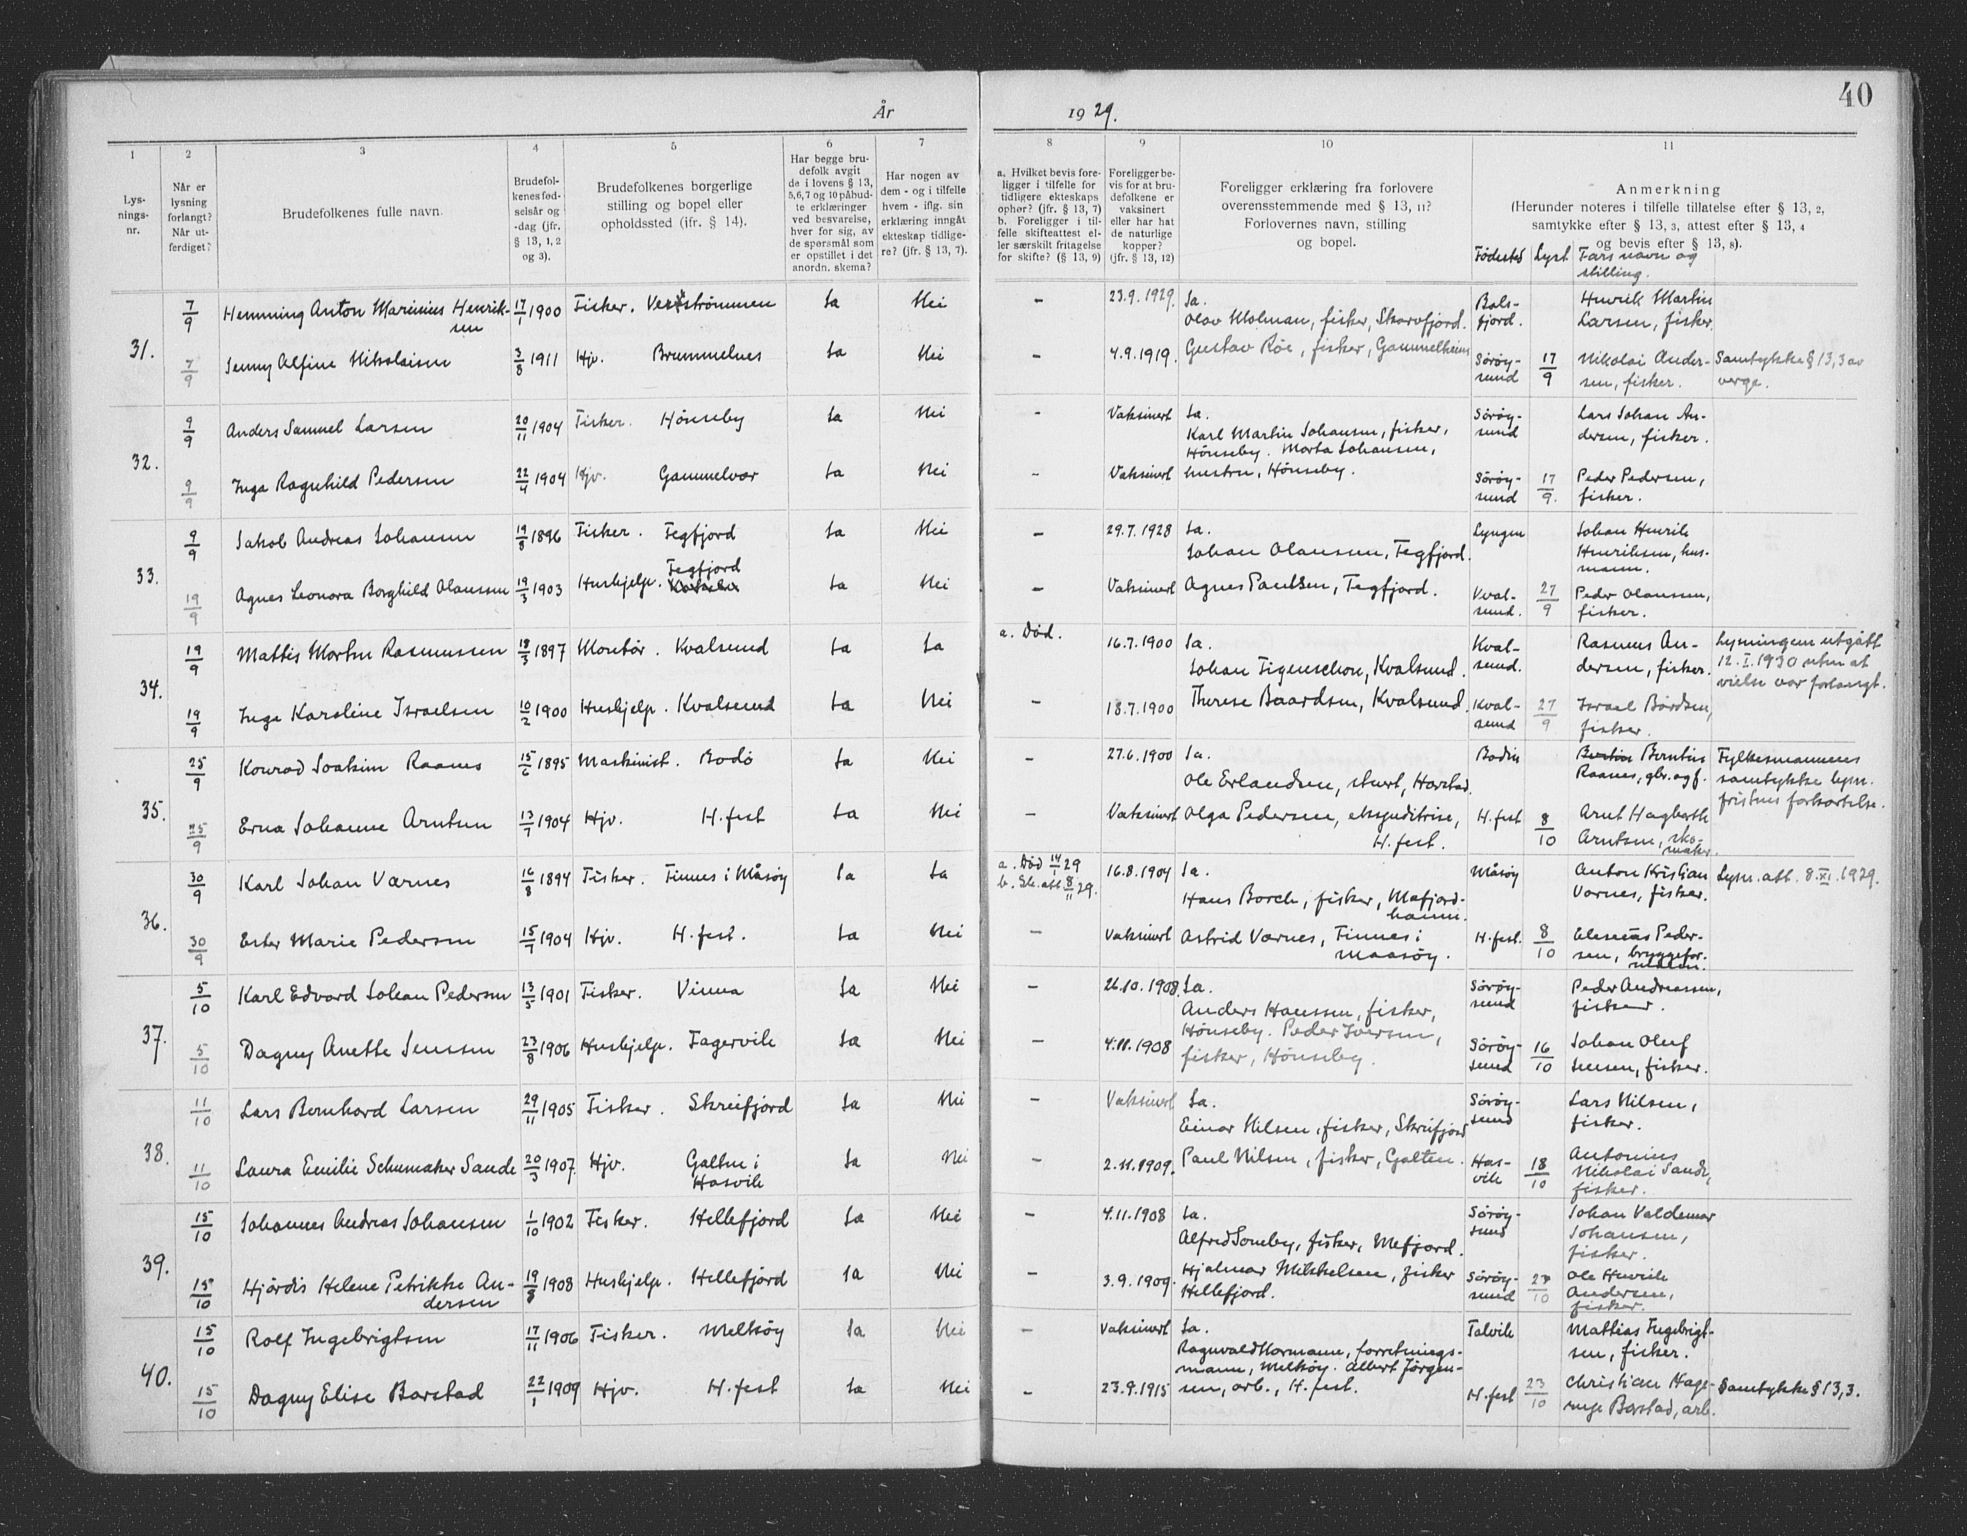 40
År 1929.
1 2 3 4 5 6 7 8 9 10 11
Lys-
nings-
nr.
Når er
lysning
forlangt?
Når ut-
ferdiget?
Brudefolkenes fulle navn.
Brudefol-
kenes fød-
selsår og
-dag (jfr.
§ 13, 1, 2
og 3).
Brudefolkenes borgerlige
stilling og bopel eller
opholdssted (jfr. § 14).
Har begge bru-
defolk avgit
de i lovens § 13,
5,6,7 og 10 påbud-
te erklæringer
ved besvarelse,
hver for sig, av
de spørsmål som
er opstillet i det
anordn. skema?
Har nogen av
dem - og i tilfelle
hvem - iflg. sin
erklæring inngått
ekteskap tidlige-
re? (jfr. § 13, 7).
a. Hvilket bevis fore-
ligger i tilfelle for
tidligere ekteskaps
ophør? (jfr. § 13, 7)
b. Foreligger i til-
felle skifteattest el-
ler særskilt fritagelse
for skifte? (§ 13, 9)
Foreligger be-
vis for at bru-
defolkene er
vaksinert
eller har hat
de naturlige
kopper?
(jfr. § 13, 12)
Foreligger erklæring fra forlovere
overensstemmende med § 13, 11?
Forlovernes navn, stilling
og bopel.
Anmerkning
(Herunder noteres i tilfelle tillatelse efter § 13, 2,
samtykke efter § 13, 3, attest efter § 13, 4
og bevis efter § 13, 8).
Fødested Lyst Fars navn og
stilling.
31.
7/9 Henning Anton Marinius Henrik-
sen 17/1 1900 Fisker. Vestrømmen Ja Nei - 23.9.1929. Ja.
Olav Molman, fisker, Skarvfjord. Bals-
fjord. Henrik Martin
Larsen, fisker.
7/9 Jenny Alfine Nikolaisen 3/8 1911 Hjv. Brummelnes Ja Nei - 4.9.1919. Gustav Röe, fisker, Gammelheim Sörøy-
sund 17/9 Nikolai Ander-
sen, fisker. Samtykke § 13,3 av
verge.
32.
9/9 Anders Samuel Larsen 20/11 1904 Fisker. Hönseby Ja Nei - Vaksinert Ja.
Karl Martin Johansen, fisker,
Hönseby. Marta Johansen,
hustru, Hönseby. Sörøy-
sund Lars Johan An-
dersen, fisker.
9/9 Inga Ragnhild Pedersen 22/4 1904 Hjv. Gammelvær Ja Nei - Vaksinert Sörøy-
sund 17/9. Peder Pedersen,
fisker.
33.
9/9 Jakob Andreas Johansen 19/8 1896 Fisker. Fegfjord Ja Nei - 29.7.1928 Ja.
Johan Olaussen, Fegfjord. Lyngen Johan Henrik
Henriksen, hus-
mann.
19/9 Agnes Leonora Borghild Olaussen 19/3 1903 Hushjelp. Fegfjord Ja Nei - Vaksinert Agnes Paulsen, Fegfjord. Kval-
sund. 27/9 Peder Olaussen,
fisker.
34.
19/9 Mattis Martin Rasmussen 18/3 1897 Montör. Kvalsund Ja Ja a. Död. 16.7.1900 Ja.
Johan Figenschou, Kvalsund. Kval-
sund. Rasmus An-
dersen, fisker. Lysningen utgått
12.I.1930 uten at
vielse var forlangt.
19/9 Inga Karoline Israelsen 10/2 1900 Hushjelp. Kvalsund Ja Nei - 18.7.1900 Therese Baardsen, Kvalsund. Kval-
sund 27/9 Israel Bårdsen,
fisker.
35.
25/9 Konrad Joakim Raanes 15/6 1895 Maskinist. Bodö Ja Nei - 27.6.1900 Ja.
Ole Erlandsen, stuert, Harstad. Bodin Berntin Berntin
Raanes, gbr. og f. Fylkesmannens
samtykke lysn.
fristens forkortelse.
25/9 Erna Johanne Arntsen 13/7 1904 Hjv. H.fest Ja Nei - Vaksinert Olga Pedersen, ekspeditrise,
H.fest. H.fest 8/10 Arnt Hagbarth
Arntsen, sko-
maker.
36.
30/9 Karl Johan Værnes 16/8 1894 Fisker. Finnes i Måsøy Ja Ja a. Död 14/ 29
b. Sk.att. 8/11 29. 16.8.1904 Ja.
Hans Borch, fisker, Mafjord-
hamn. Måsöy Anton Kristian
Værnes, fisker. Lysn. att. 8.XI.1929.
30/9 Ester Marie Pedersen 15/7 1904 Hjv. H.fest. Ja Nei - Vaksinert Astrid Værnes, Finnes i
Maasöy. H.fest. 8/10 Eleseus Peder-
sen, bryggefor-
valter.
37.
5/10 Karl Edvard Johan Pedersen 13/5 1901 Fisker. Vinna Ja Nei - 26.10.1908. Ja.
Anders Hanssen, fisker,
Hönseby. Peder Iversen,
fisker, Hönseby. Sörøy-
sund Peder Andreassen,
fisker.
5/10 Dagny Anette Jenssen 23/8 1906 Hushjelp. Fagervik Ja Nei - 4.11.1908 Sörøy-
sund 16/10 Johan Oluf
Jensen, fisker.
38.
11/10 Lars Bernhard Larsen 29/11 1905 Fisker. Skreifjord Ja Nei - Vaksinert Ja.
Einar Nilsen, fisker, Skreifjord Sörøy-
sund Lars Nilsen,
fisker.
11/10 Laura Emilie Schumaker Sande 20/3 1907 Hjv. Galten i
Hasvik Ja Nei - 2.11.1909. Paul Nilsen, fisker, Galten. Has-
vik 18/10 Antonius
Nikolai Sande,
fisker.
39.
15/10 Johannes Andreas Johansen 1/10 1902 Fisker. Hellefjord Ja Nei - 4.11.1908 Ja.
Alfred Soneby, fisker, Mefjord. Sörøy-
sund Johan Valdemar
Johansen,
fisker.
15/10 Hjördis Helene Petrikke An-
dersen 19/8 1908 Hushjelp. Hellefjord Ja Nei - 3.9.1909. Hjalmar Mikkelsen, fisker
Hellefjord. Sörøy-
sund 23/10 Ole Henrik
Andersen,
fisker.
40.
15/10 Rolf Ingebrigtsen 17/11 1906 Fisker. Melköy Ja Nei - Vaksinert Ja.
Ragnvald Normann, forretnings-
mann, Melköy. Albert Jörgen-
sen, arb., H.fest. Talvik Mattias Ingebrigt-
sen, fisker.
15/10 Dagny Elise Barstad 22/1 1909 Hjv. H.fest Ja Nei - 23.9.1915 H.fest 23/10 Christian Hage-
rup Barstad, arb. Samtykke § 13,3.